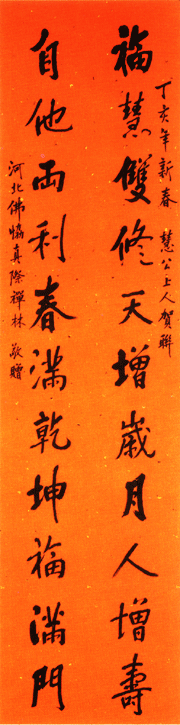 丁亥年新春 慧公上人賀聯
福慧雙修天增歲月人增壽
自他兩利春滿乾坤福滿門
河北佛協真際禪林 敬贈